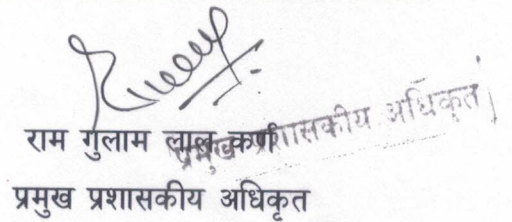 राम गुलाम लाल कर्ण
प्रमुख प्रशासकीय अधिकृत
प्रमुख प्रशासकीय अधिकृत